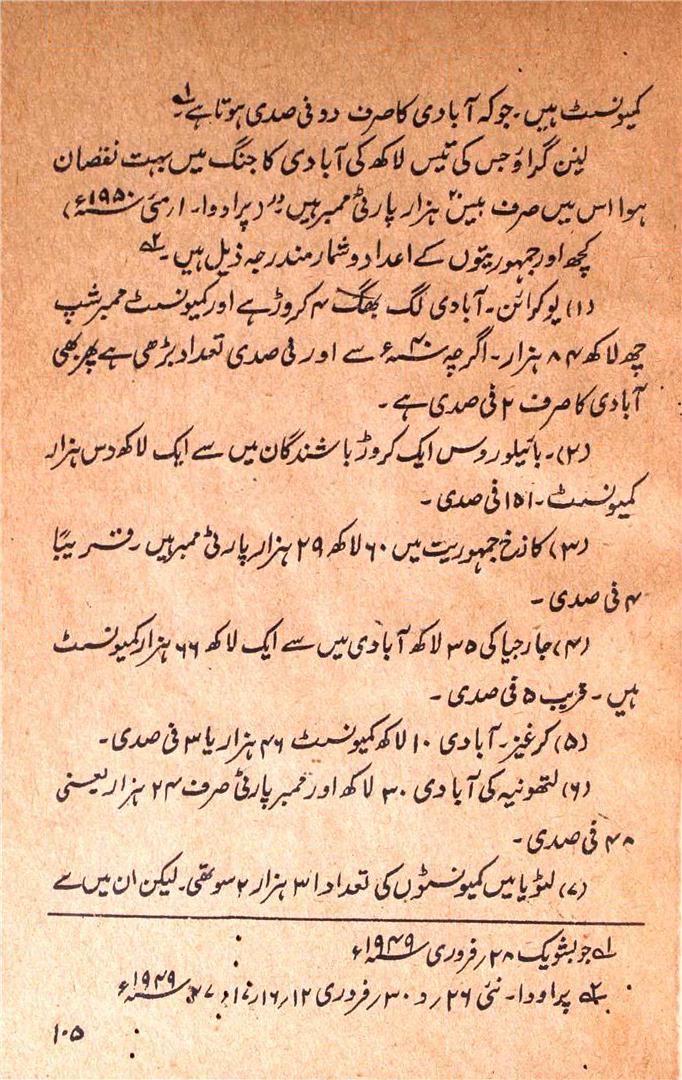 کمیونسٹ ہیں۔ جو کہ آبادی کا صرف دو فی صدی ہوتا ہے۔۱؎
لینن گراؤ جس کی تیس لاکھ کی آبادی کا جنگ میں بہت نقصان
ہوا اس میں صرف بیس ۲۰ ہزار پارٹی ممبر ہیں (پراودا۔ ۱ر مئی ۱۹۵۰ء)
کچھ اور جمہوریتوں کے اعداد و شمار مندرجہ ذیل ہیں۔۲؎
(۱) یوکرائن۔ آبادی لگ بھگ ۴ کروڑ ہے اور کمیونسٹ ممبر شپ
چھ لاکھ ۸۴ ہزار۔ اگرچہ ۴۰ء سے اور فی صدی تعداد بڑھی ہے پھر بھی
آبادی کا صرف ۲ فی صدی ہے۔
(۲)۔ بائیلو روس ایک کروڑ باشندگان میں سے ایک لاکھ دس ہزار
کمیونسٹ۔ ۱۵۱ فی صدی۔
(۳) کازخ جمہوریت میں ۶۰ لاکھ ۲۹ ہزار پارٹی ممبر ہیں۔ قریباً
۴ فی صدی۔
(۴) جارجیا کی ۳۵ لاکھ آبادی میں سے ایک لاکھ ۶۶ ہزار کمیونسٹ
ہیں۔ قریب ۵ فی صدی۔
(۵) کرغیز۔ آبادی ۱۰ لاکھ کمیونسٹ ۴۶ ہزار یا ۳ فی صدی۔
(۶) لتھونیہ کی آبادی ۳۰ لاکھ اور ممبر پارٹی صرف ۲۴ ہزار یعنی
۴۸ فی صدی۔
(۷) لٹویا میں کمیونسٹوں کی تعداد ۳۱ ہزار ۲ سو تھی۔ لیکن ان میں سے
۱؎ جوبشویک ۲۸ر فروری ۱۹۴۹ء
۲؎ پراودا۔ نئی ۲۶ر د ۳۰ر فروری ۱۲ر ۱۶ر ۱۷ر د ۲۷ر ۱۹۴۹ء
۱۰۵